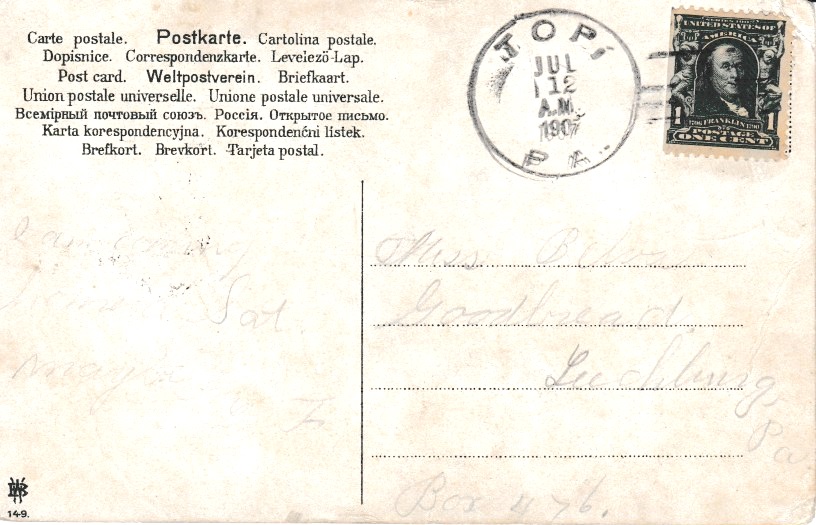 Carte postale. Postkarte. Cartolina postale.
Dopisnice. Correspondenzkarte. Levelező-Lap.
Post card. Weltpostverein. Briefkaart.
Union postale universelle. Unione postale universale.
Всемірный почтовый союзъ. Россія. Открытое письмо.
Karta korespondencyjna. Korespondenční listek.
Brefkort. Brevkort. Tarjeta postal.
TOPI
JUL
12
A.M.
1907
PA.
SERIES 1902
UNITED STATES OF
AMERICA
1 1706 FRANKLIN 1790 1
POSTAGE
ONE CENT
I am coming
Sat.
maybe
Miss
Goodbread
Pa
Box 476.
149.